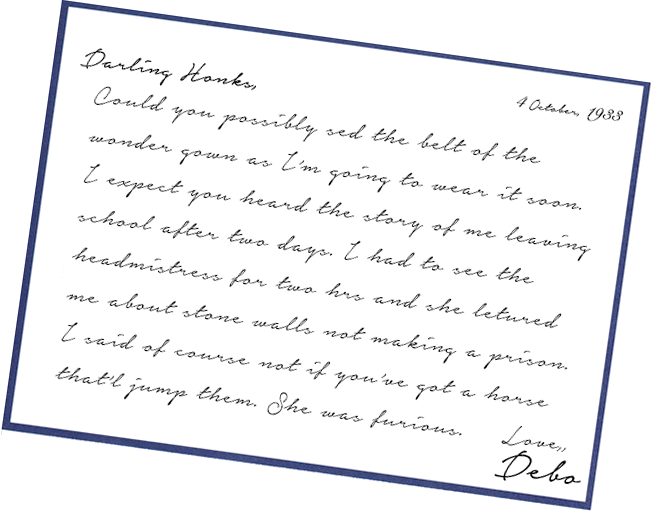 Darling Honks,
4 October, 1933
Could you possibly sed the belt of the
wonder gown as I'm going to wear it soon.
I expect you heard the story of me leaving
school after two days. I had to see the
headmistress for two hrs and she letured
me about stone walls not making a prison.
I said of course not if you've got a horse
that'l jump them. She was furious.
Love,,
Debo